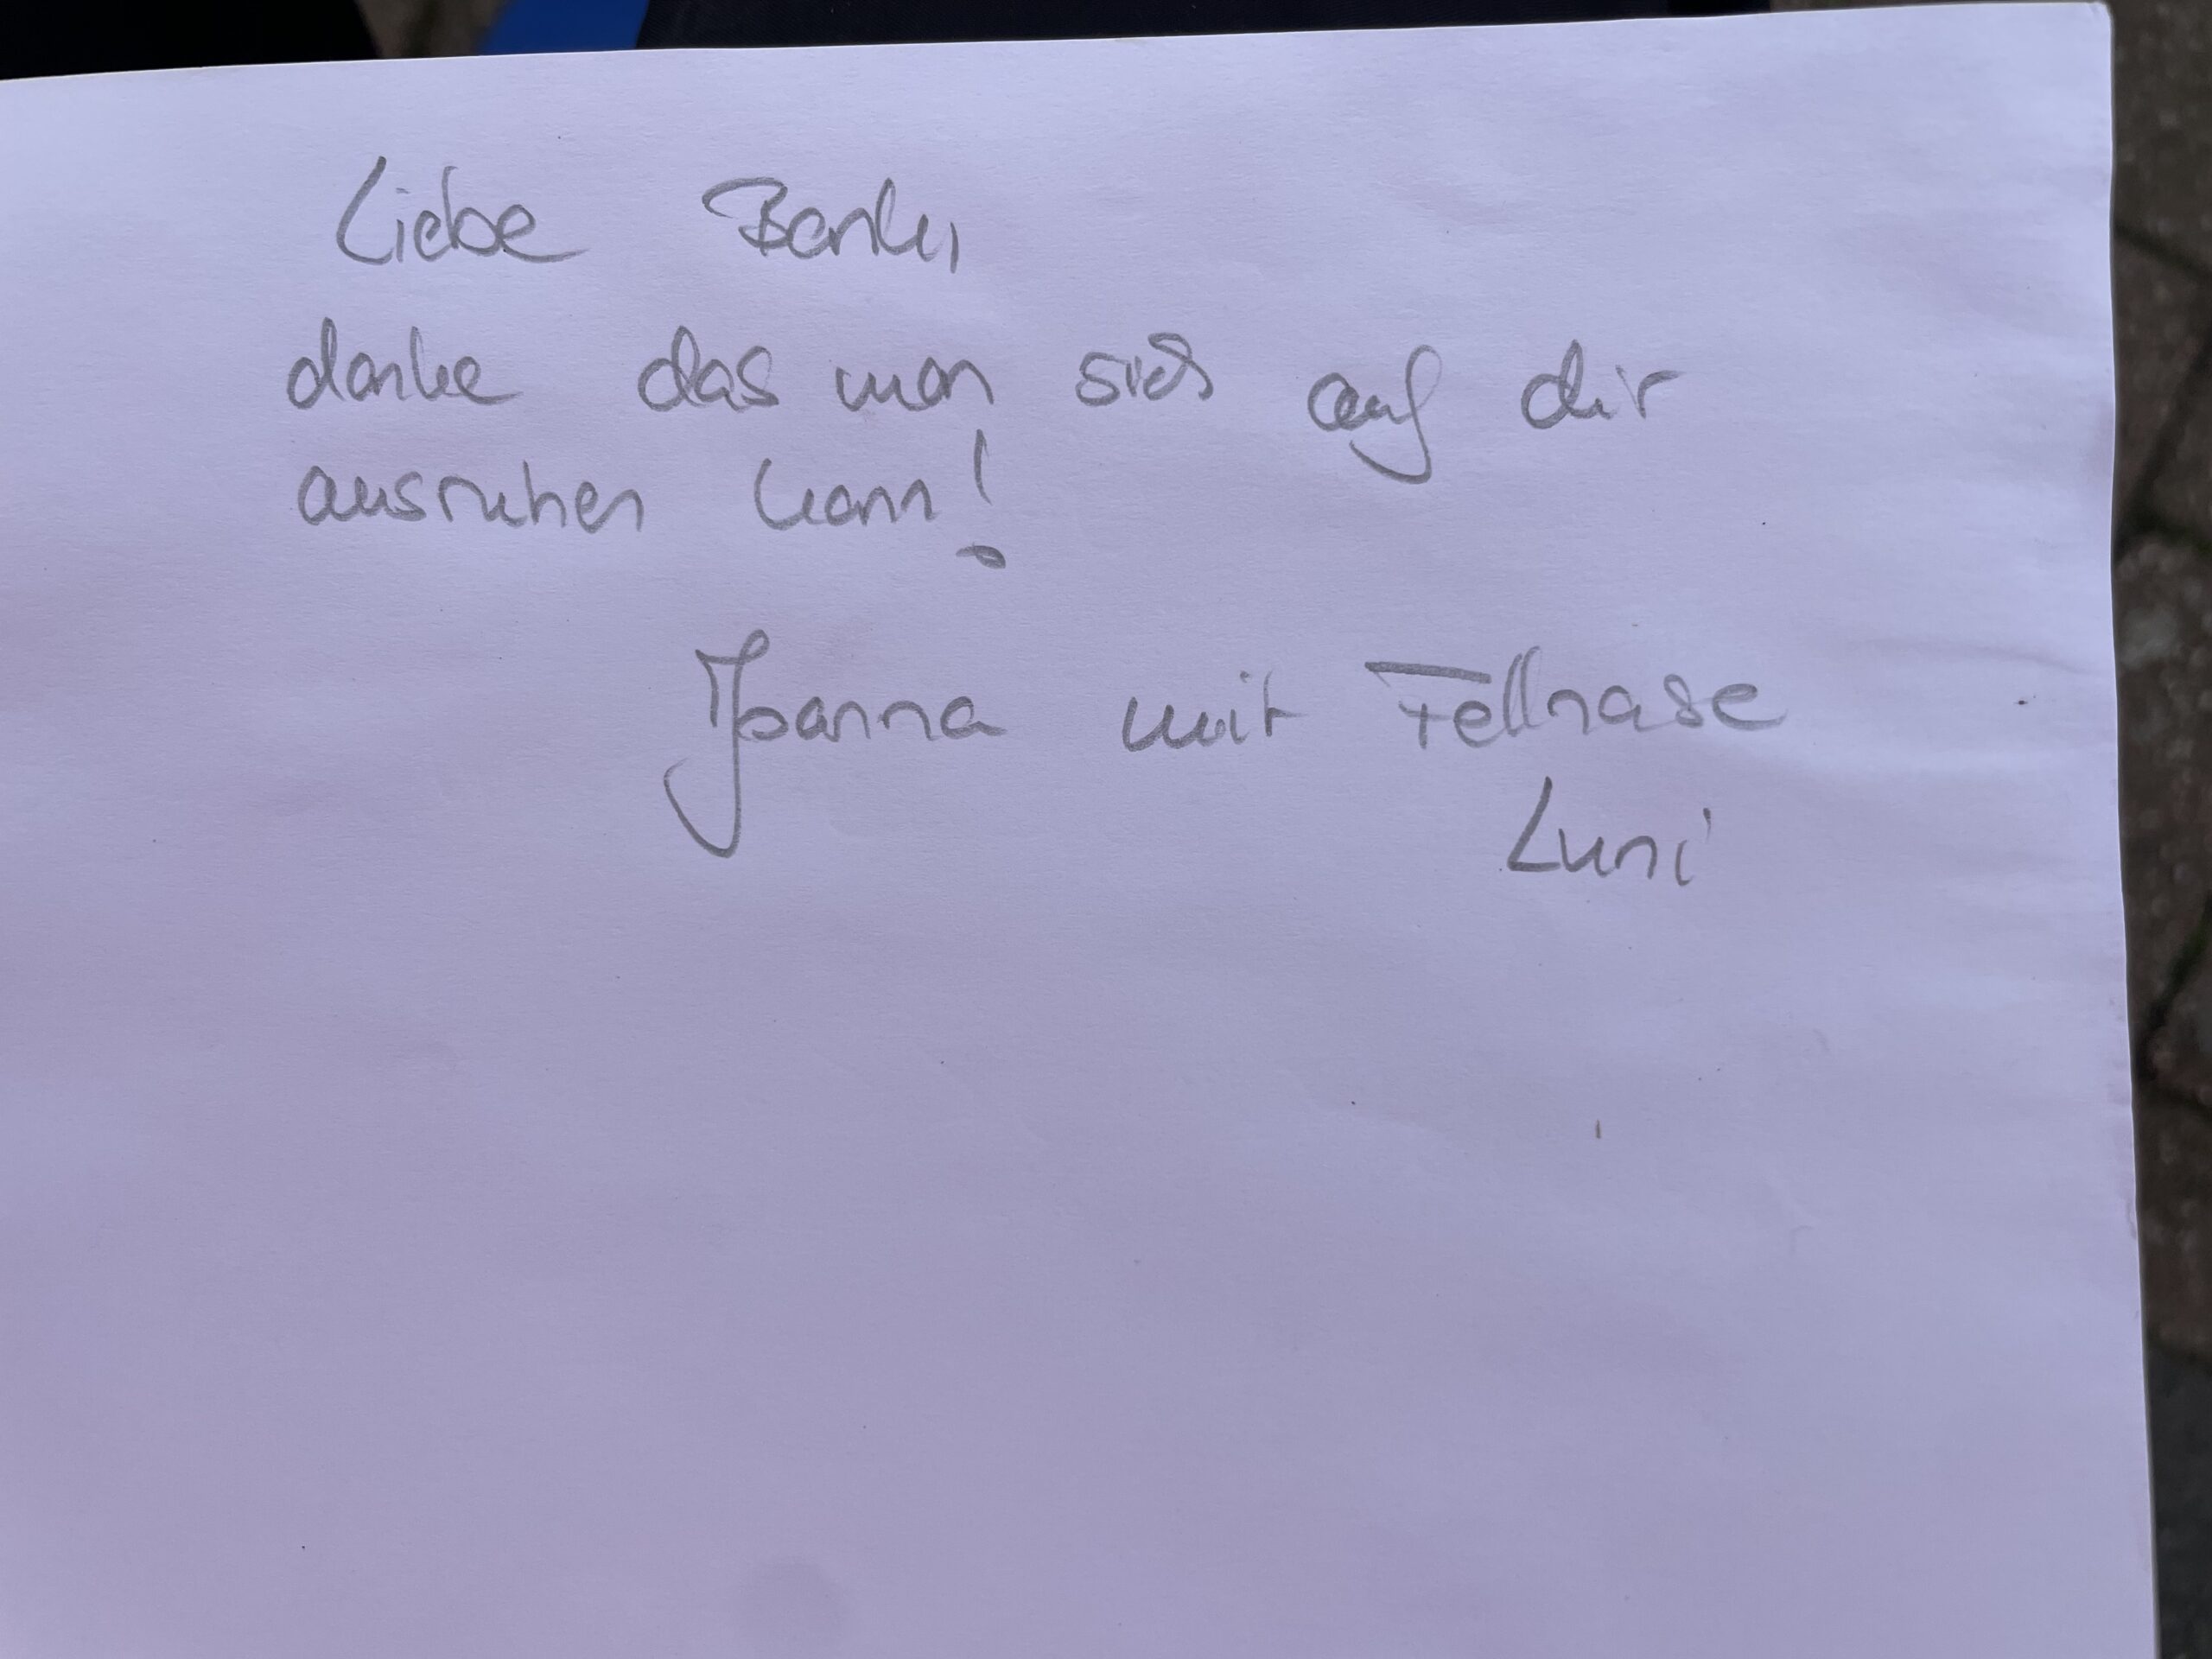 Liebe Bank,
danke das man sich auf dir
ausruhen kann!
Joanna mit Fellnase
Luni